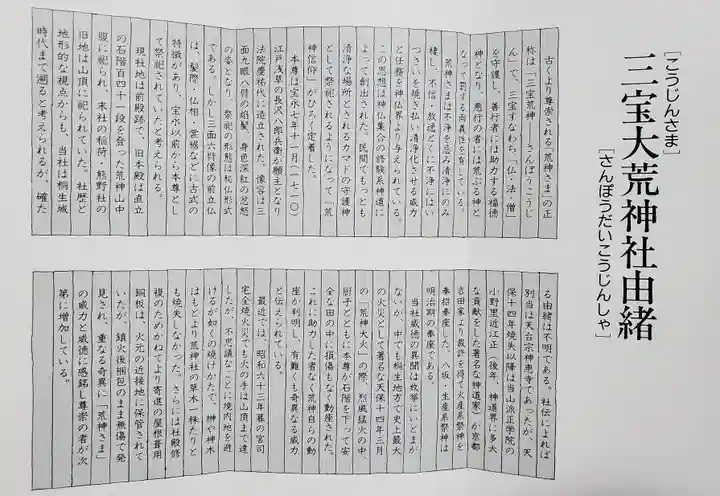 [こうじんさま]
三宝大荒神社由緒
[さんぽうだいこうじんしゃ]
古くより尊崇される「荒神さま」の正
称は「三宝荒神——さんぽうこうじ
ん」で、三宝すなわち「仏・法・僧」
を守護し、善行者には助力する福徳
神となり、悪行の者には荒ぶる神と
なって罰する両義性を有している。
荒神さまは不浄を忌み清浄にのみ
棲し、不信・放逸とくに不浄にはい
つさいを焼き払い清浄化させる威力
と任務を神仏界より与えられている。
この思想は神仏集合の修験系神道に
よって創出された。民間でもっとも
清浄な場所とされるカマドの守護神
として祭祀されるようになって「荒
神信仰」がひろく定着した。
本尊は宝永七年十一月(一七一〇)
江戸浅草の長沢八郎兵衛が願主となり
法院慶祐代に造立された。像容は三
面九眼八臂の焔髪、身色深紅の忿怒
の姿となり、祭祀の形態は秘仏形式
である。しかし三面六臂像の前立仏
は、髪際・仏相・裳裾などに古式の
特徴があり、宝永以前から本尊とし
て祭祀されていたと考えられる。
現社地は前殿跡で、旧本殿は直立
の石階百四十一段を登った荒神山中
腹に祀られ、末社の稲荷・熊野社の
旧地は山頂に祀られていた。社歴と
地形的な視点からも、当社は桐生城
時代まで遡ると考えられるが、確た
る由緒は不明である。社伝によれば
別当は天台宗神恵寺であったが、天
保十四年焼失以降は当山派正学院の
小野里近江正(後年、神道界に多大
な貢献をした著名な神道家)が京都
吉田家より裁許を得て火産系祭神を
奉招奉座した。八坂・生産系祭神は
明治期の奉座である。
当社威徳の異聞は枚挙にいとまが
ないが、中でも桐生地方で史上最大
の火災として著名な天保十四年三月
の「荒神大火」の際、烈風猛火の中、
厨子とともに本尊が石階を下って安
全な田の中に損傷もなく動座された。
これに助力した者なく荒神自らの動
座が判明し、有難くも奇異なる威力
と伝えられている。
最近では、昭和六十三年暮の宮司
宅全焼火災でも火の手は山頂まで達
したが、不思議なことに境内地を避
けるが如くの焼けかたで、榊や神木
はもとより荒神社の草木一株たりと
も焼失しなかった。さらには社殿修
複のためかねてより寄進の屋根葺用
銅板は、火元の近接地に保管されて
いたが、鎮火後梱包のまま無傷で発
見され、重なる奇異に「荒神さま」
の威力と威徳に感銘し尊崇の者が次
第に増加している。